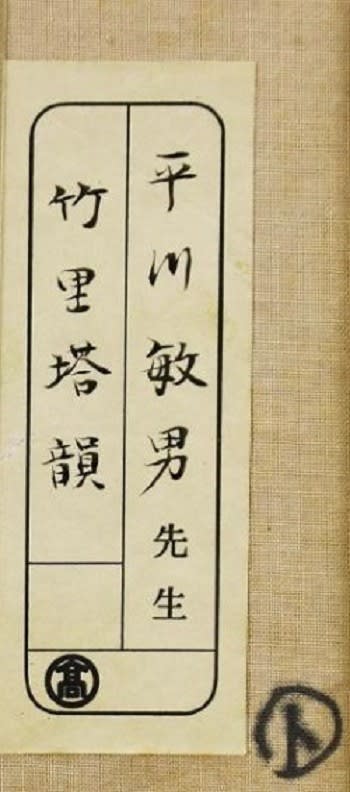 平川敏男先生
竹里塔韻
髙
ト